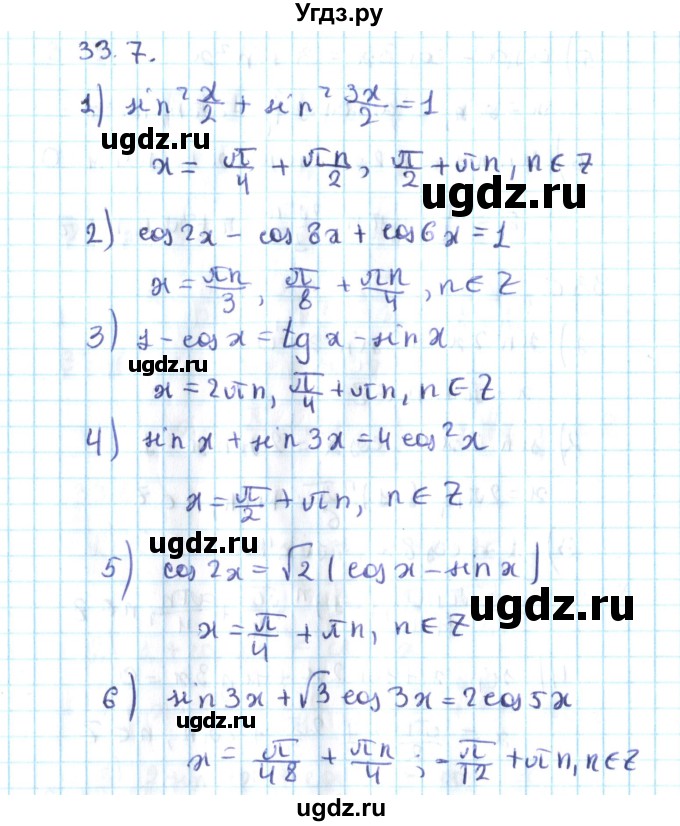 Угдз.ру
33.7.
1) sin² x/2 + sin² 3x/2 = 1
ugdz.ru
x = π/4 + πn/2, π/2 + πn, n ∈ Z
ugdz.ru
2) cos 2x - cos 8x + cos 6x = 1
x = πn/3, π/8 + πn/4, n ∈ Z
3) 1 - cos x = tg x - sin x
ugdz.ru
x = 2πn, π/4 + πn, n ∈ Z
4) sin x + sin 3x = 4 cos² x
x = π/2 + πn, n ∈ Z
ugdz.ru
5) cos 2x = √2 (cos x - sin x)
ugdz.ru
x = π/4 + πn, n ∈ Z
6) sin 3x + √3 cos 3x = 2 cos 5x
ugdz.ru
x = π/48 + πn/4 ; -π/12 + πn, n ∈ Z
ugdz.ru